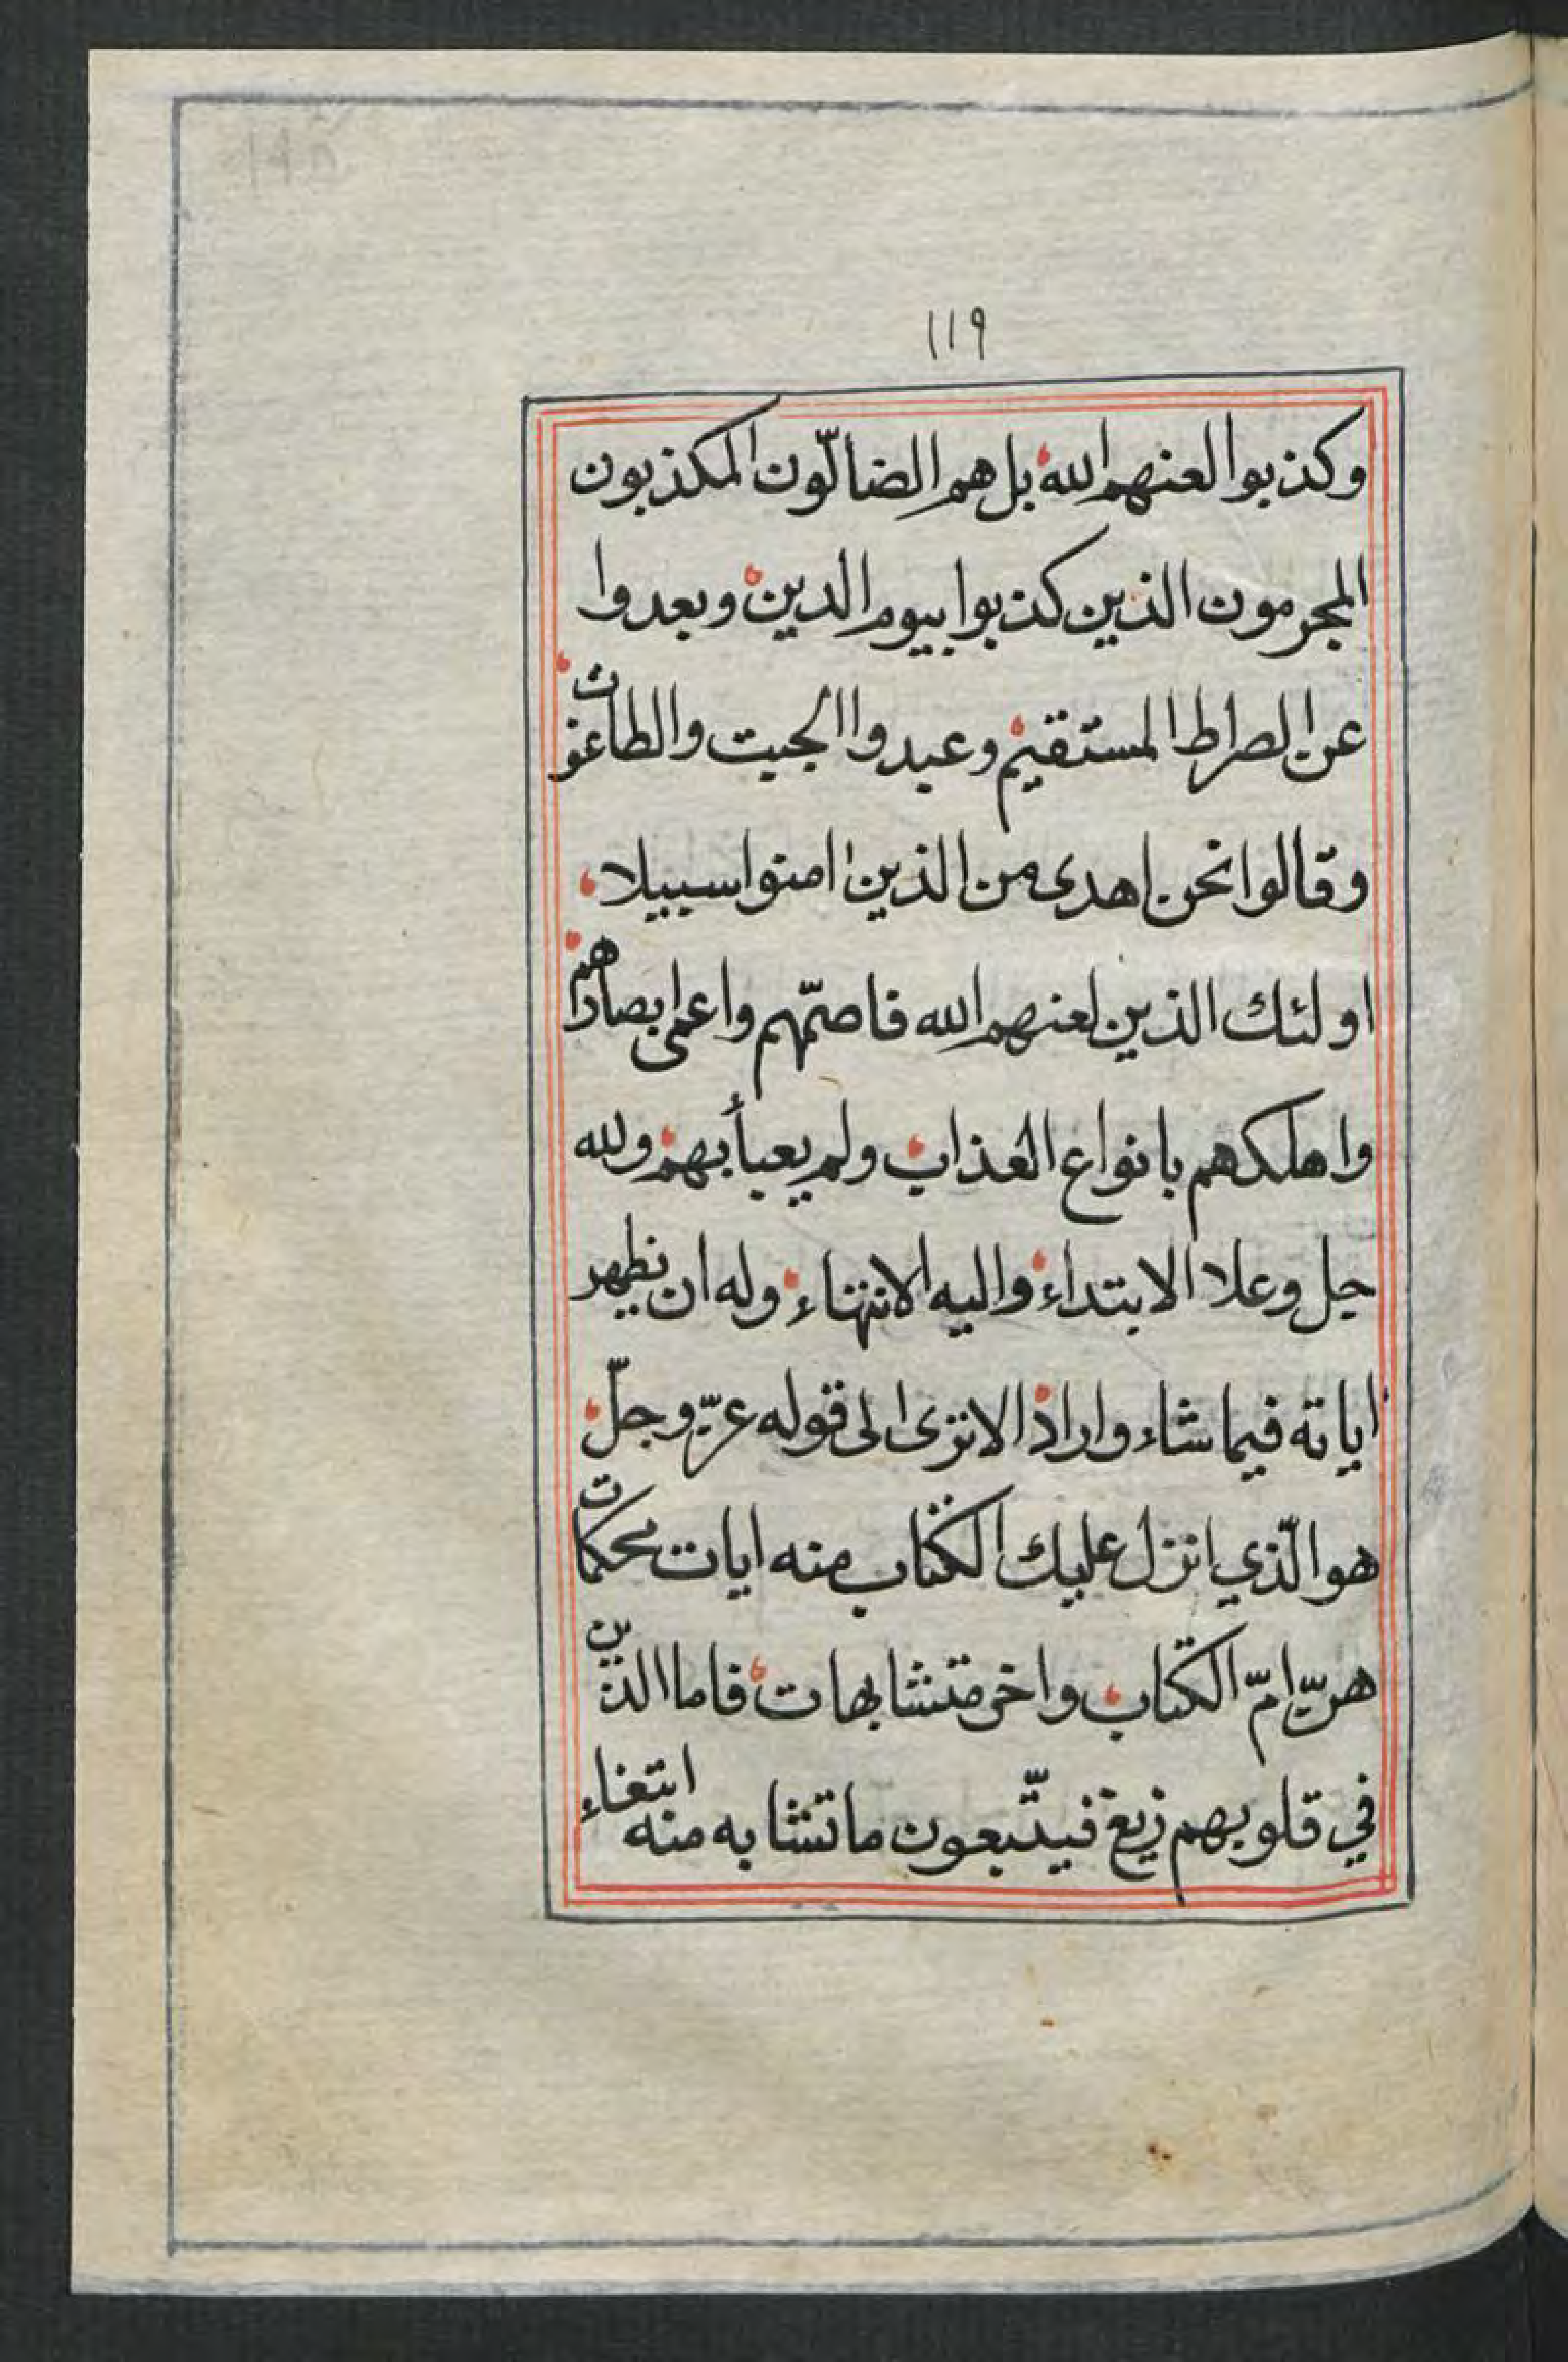 ١١٩
وكذبوا لعنهم الله بل هم الضالّون المكذبون
المجرمون الذين كذبوا بيوم الدين وبعدوا
عن الصراط المستقيم وعبدوا الجبت والطاغوت
وقالوا نحن اهدى من الذين امنوا سبيلا
اولئك الذين لعنهم الله فاصمّهم واعمى ابصارهم
واهلكهم بانواع العذاب ولم يعبأ بهم ولله
جل وعلا الابتداء واليه الانتهاء وله ان يظهر
اياته فيما شاء واراد الا ترى الى قوله عزّ وجلّ
هو الّذي انزل عليك الكتاب منه ايات محكمات
هنّ امّ الكتاب واخر متشابهات فاما الذين
في قلوبهم زيغ فيتّبعون ما تشابه منه ابتغاء